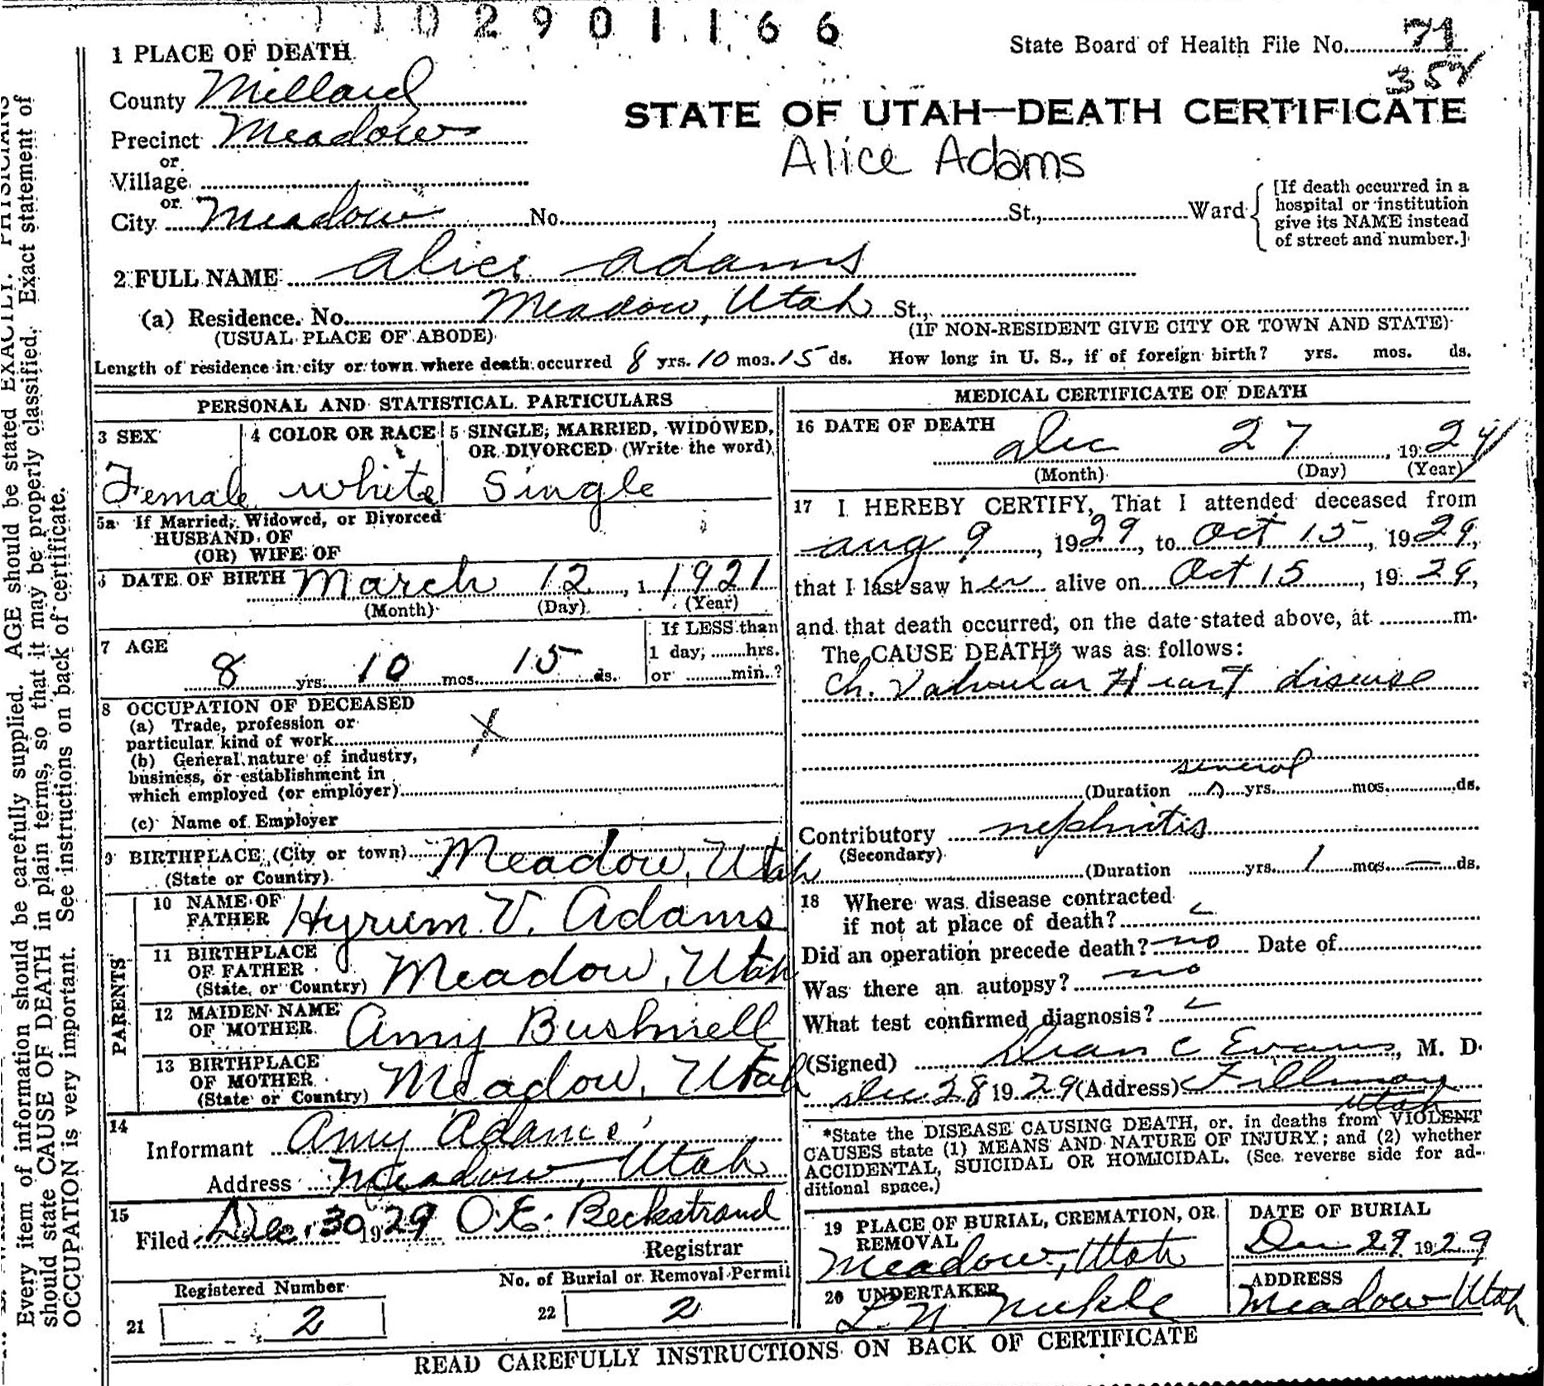 1 1 0 2 9 0 1 1 6 6
State Board of Health File No. 71
35
1 PLACE OF DEATH
County Millard
Precinct Meadow
STATE OF UTAH—DEATH CERTIFICATE
Alice Adams
or
Village
or
City Meadow No. , St., Ward
[If death occurred in a
hospital or institution
give its NAME instead
of street and number.]
2 FULL NAME Alice Adams
(a) Residence. No. Meadow, Utah St.,
(USUAL PLACE OF ABODE) (IF NON-RESIDENT GIVE CITY OR TOWN AND STATE)
Length of residence in city or town where death occurred 8 yrs. 10 mos. 15 ds. How long in U. S., if of foreign birth? yrs. mos. ds.
PERSONAL AND STATISTICAL PARTICULARS
3 SEX 4 COLOR OR RACE 5 SINGLE, MARRIED, WIDOWED,
OR DIVORCED (Write the word)
Female white Single
5a If Married, Widowed, or Divorced
HUSBAND OF
(OR) WIFE OF
6 DATE OF BIRTH March 12, 1 1921
(Month) (Day) (Year)
7 AGE
8 yrs. 10 mos. 15 ds.
If LESS than
1 day, hrs.
or min.?
8 OCCUPATION OF DECEASED
(a) Trade, profession or
particular kind of work X
(b) General nature of industry,
business, or establishment in
which employed (or employer)
(c) Name of Employer
9 BIRTHPLACE (City or town) Meadow, Utah
(State or Country)
PARENTS
10 NAME OF
FATHER Hyrum V. Adams
11 BIRTHPLACE
OF FATHER
(State or Country) Meadow, Utah
12 MAIDEN NAME
OF MOTHER Amy Bushnell
13 BIRTHPLACE
OF MOTHER
(State or Country) Meadow, Utah
14
Informant Amy Adams
Address Meadow, Utah
15
Filed Dec. 30 1929 O. E. Beckstrand
Registrar
Registered Number No. of Burial or Removal Permit
21 2 22 2
MEDICAL CERTIFICATE OF DEATH
16 DATE OF DEATH
Dec 27, 192
(Month) (Day) (Year)
17 I HEREBY CERTIFY, That I attended deceased from
Aug 9, 1929, to Oct 15, 1929,
that I last saw her alive on Oct 15, 1929,
and that death occurred, on the date stated above, at m.
The CAUSE DEATH* was as follows:
Ch. Valvular Heart disease
several
(Duration yrs. mos. ds.
Contributory nephritis
(Secondary)
(Duration yrs. 1 mos — ds.
18 Where was disease contracted
if not at place of death?
Did an operation precede death? no Date of
Was there an autopsy? no
What test confirmed diagnosis?
(Signed) Dean C Evans, M. D.
Dec 28 1929 (Address) Fillmore
Utah
*State the DISEASE CAUSING DEATH, or, in deaths from VIOLENT
CAUSES state (1) MEANS AND NATURE OF INJURY; and (2) whether
ACCIDENTAL, SUICIDAL OR HOMICIDAL. (See reverse side for ad-
ditional space.)
19 PLACE OF BURIAL, CREMATION, OR
REMOVAL
Meadow, Utah
DATE OF BURIAL
Dec 29 1929
20 UNDERTAKER
L. N.
ADDRESS
Meadow Utah
READ CAREFULLY INSTRUCTIONS ON BACK OF CERTIFICATE
Every item of information should be carefully supplied. AGE should be stated EXACTLY. PHYSICIANS
should state CAUSE OF DEATH in plain terms, so that it may be properly classified. Exact statement of
OCCUPATION is very important. See instructions on back of certificate.